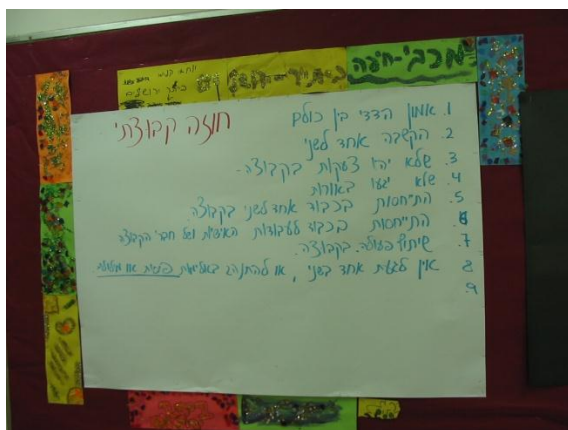 מכבי-חיפה
ביתר-
חוזה קבוצתי
1. אמון הדדי בין כולם
2. הקשבה אחד לשני
3. שלא יהיו צעקות בקבוצה-
4. שלא יגעו באורות
5. התייחסות בכבוד אחד לשני בקבוצה.
6. התייחסות בכבוד לעבודות האישיות של חברי הקבוצה
7. שיתוף פעולה בקבוצה.
8 אין לגעת אחד בשני, או להתנהג באלימות פיזית או מילולית
9.